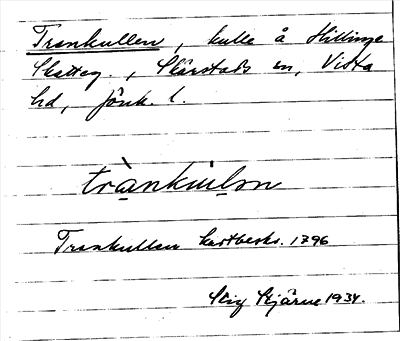 Trankullen, kulle å Hillinge
Skatteg., Skärstads sn, Vista
hd, Jönk. l.
tra̱nku̱lǝn
Trankullen kartbeskr. 1796
Stig Stjärne 1934.